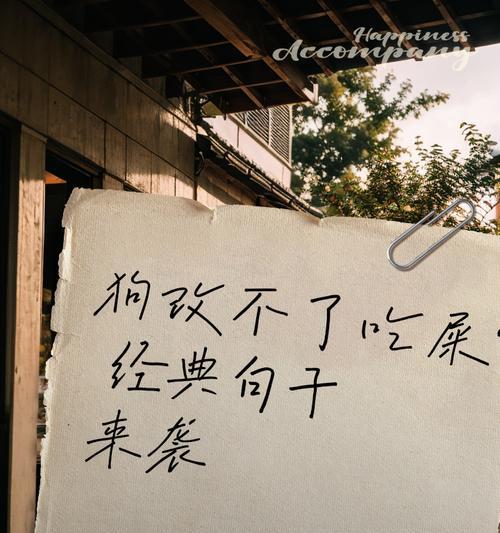 Happiness
Accompany
狗改不了吃屎
经典句子
来袭